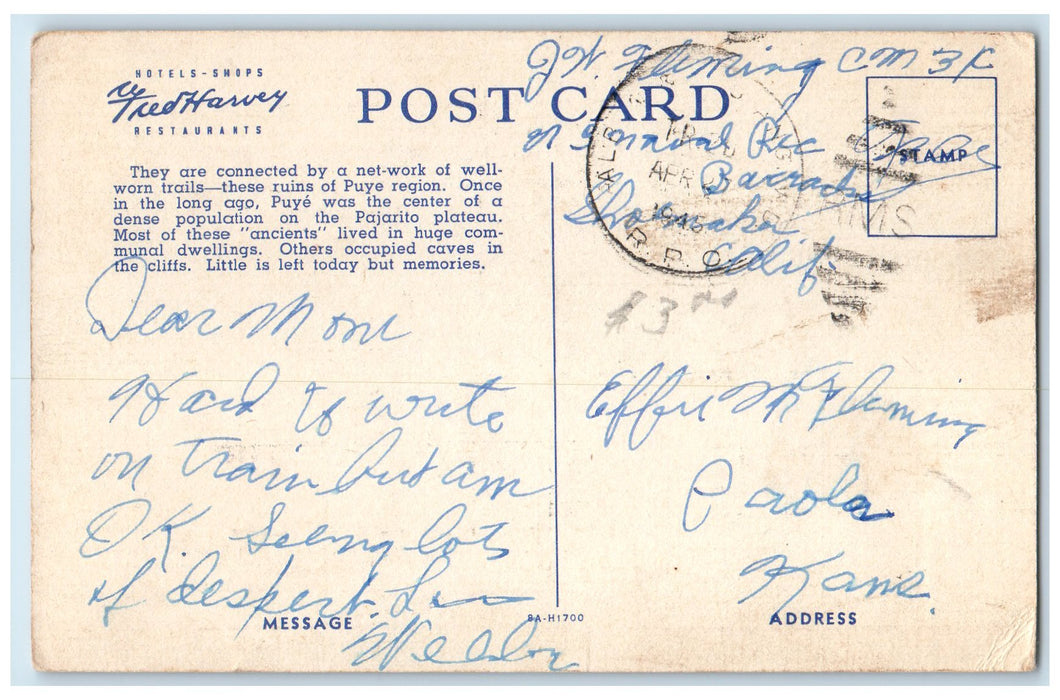 HOTELS-SHOPS
Fred Harvey
RESTAURANTS
POST CARD
J W. Fleming CM 3/c
U S Naval Rec
Barracks
Shoemaker
Calif
Free
STAMP
RMS
ALB
APR
1945
R.P.O.
$3.00
They are connected by a net-work of well-
worn trails—these ruins of Puye region. Once
in the long ago, Puyé was the center of a
dense population on the Pajarito plateau.
Most of these "ancients" lived in huge com-
munal dwellings. Others occupied caves in
the cliffs. Little is left today but memories.
Dear Mom
Hard to write
on train but am
OK. Seeing lots
of despert.
MESSAGE
8A-H1700
Effie M Fleming
Paola
Kans.
ADDRESS